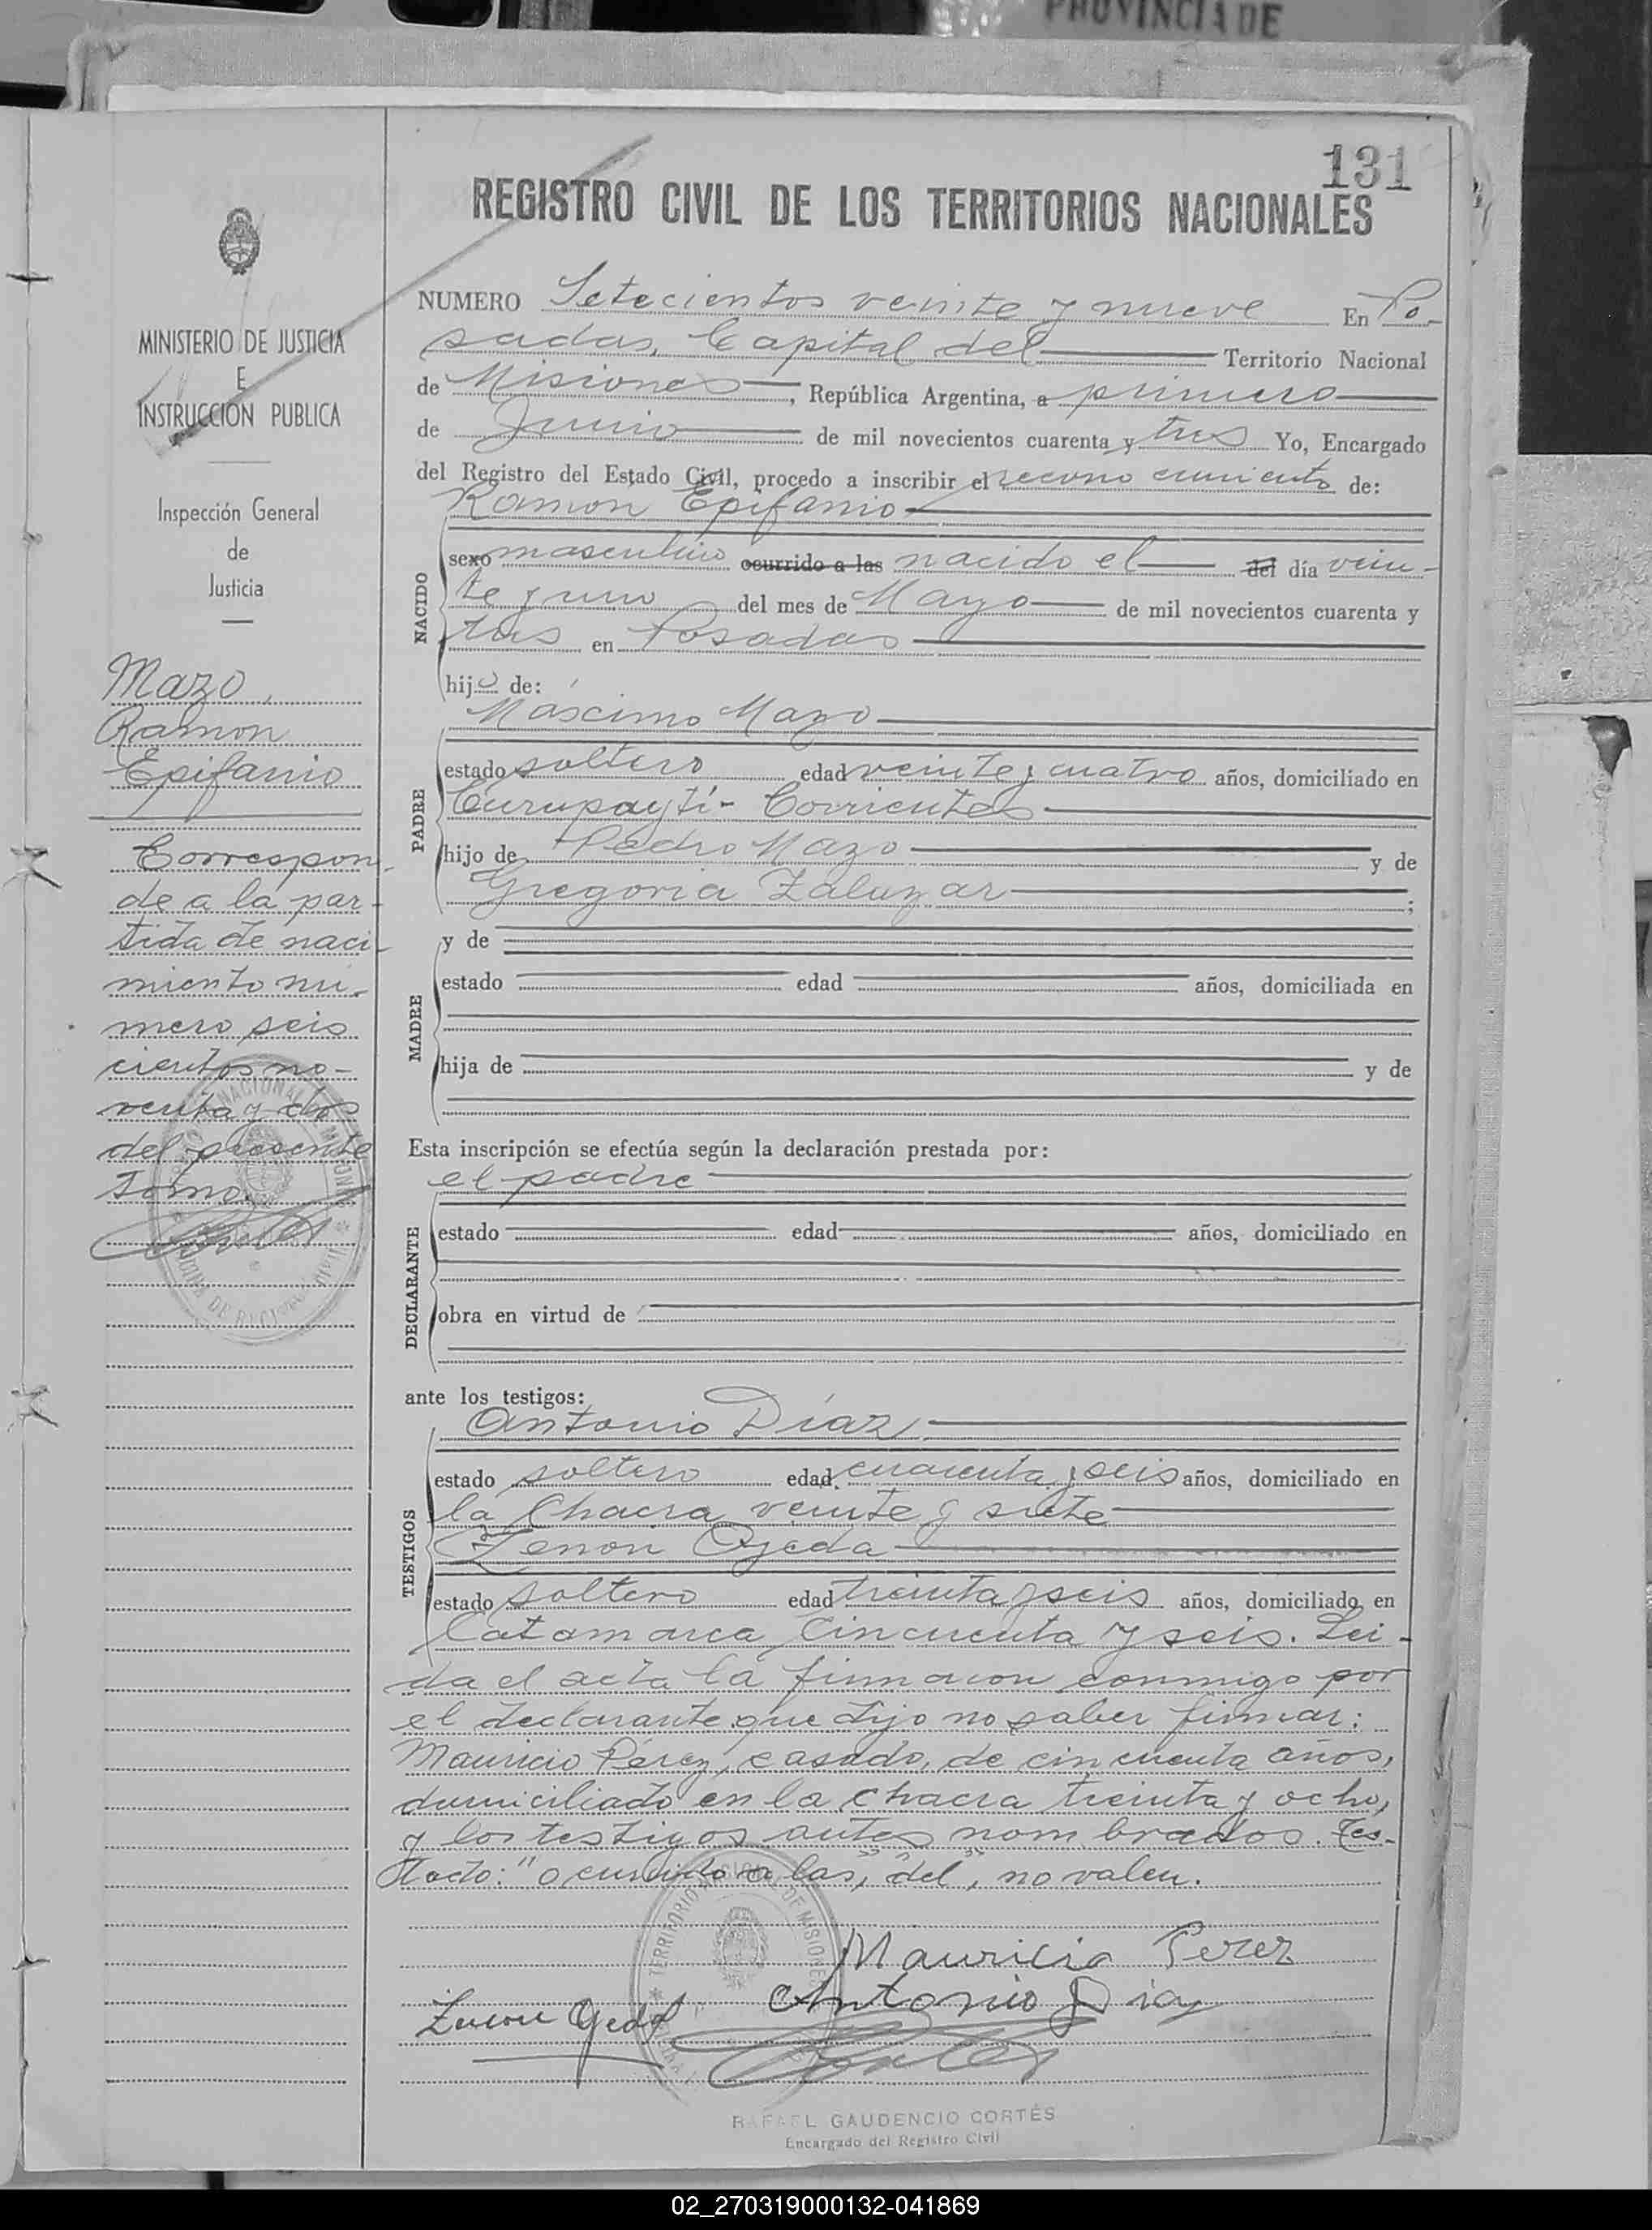 PROVINCIA DE
131
REGISTRO CIVIL DE LOS TERRITORIOS NACIONALES
MINISTERIO DE JUSTICIA
E
INSTRUCCION PUBLICA
Inspección General
de
Justicia
Mazo,
Ramon
Epifanio
Correspon
de a la par-
tida de naci-
miento nú-
mero seis
cientos no-
venta y dos
del presente
tomo.
NUMERO Setecientos veinte y nueve En Po-
sadas, Capital del Territorio Nacional
de Misiones, República Argentina, a primero
de Junio de mil novecientos cuarenta y tres Yo, Encargado
del Registro del Estado Civil, procedo a inscribir el reconocimiento de:
Ramon Epifanio
NACIDO
sexo masculino ocurrido a las nacido el del día vein-
te y uno del mes de Mayo de mil novecientos cuarenta y
tres en Posadas
hijo de:
PADRE
Máscimo Mazo
estado soltero edad veinte y cuatro años, domiciliado en
Curupaytí - Corrientes
hijo de Pedro Mazo y de
Gregoria Zaluzar;
MADRE
y de
estado edad años, domiciliada en
hija de y de
Esta inscripción se efectúa según la declaración prestada por:
el padre
DECLARANTE
estado edad años, domiciliado en
obra en virtud de
ante los testigos:
TESTIGOS
Antonio Díaz
estado soltero edad cuarenta y seis años, domiciliado en
la Chacra veinte y siete
Zenon Ojeda
estado soltero edad treinta y seis años, domiciliado en
Catamarca Cincuenta y seis. Lei-
da el acta la firmaron conmigo por
el declarante que dijo no saber firmar:
Mauricio Pérez, casado, de cincuenta años,
domiciliado en la chacra treinta y ocho,
y los testigos antes nombrados. Tes-
tado: "ocurrido a las", "del", no valen.
TERRITORIO NACIONAL DE MISIONES
Mauricio Perez
Antonio Diaz
Zenon Ojeda
RAFAEL GAUDENCIO CORTÉS
Encargado del Registro Civil
02_270319000132-041869